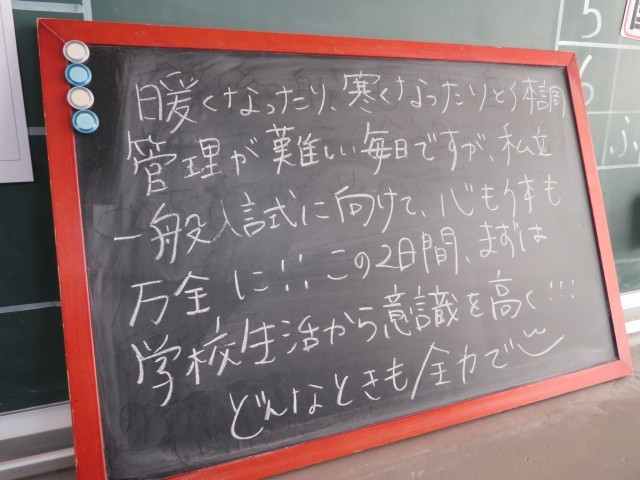 暖くなったり、寒くなったりと体調
管理が難しい毎日ですが、私立
一般入試に向けて、心も体も
万全に!! この2日間、まずは
学校生活から意識を高く!!!
どんなときも全力で
5
6
ふ